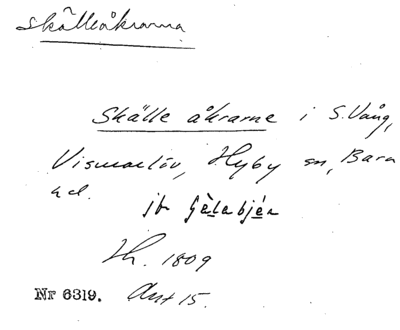 Skälleåkrarna
Skälle åkrarne i S. Vång,
Vismarlöv, Hyby sn, Bara
hd.
jfr Gèlabjér
Lh. 1809
Nr 6319. Akt 15.